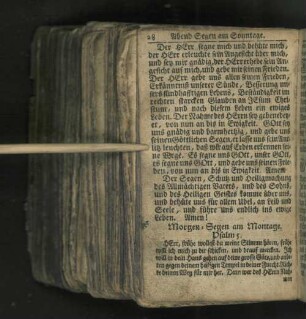 28 Abend Segen am Sontage.
Der HErr segne mich und behüte mich,
der HErr erleuchte sein Angesicht über mich,
und sey mir gnädig, der HErr erhebe sein An-
gesicht auf mich, und gebe mir seinen Frieden.
Der HErr gebe uns allen seinen Frieden,
Erkäntniß unserer Sünde, Besserung un-
sers sündhafftigen Lebens, Beständigkeit im
rechten starcken Glauben an JEsum Chri-
stum, und nach diesem Leben ein ewiges
Leben. Der Nahme des HErrn sey gebenedey-
et, von nun an bis in Ewigkeit. GOtt sey
uns gnädig und barmhertzig, und gebe uns
seinen Göttlichen Segen, er lasse uns sein Ant-
litz leuchten, daß wir auf Erden erkennen sei-
ne Wege. Es segne uns GOtt, unser GOtt,
es segne uns GOtt, und gebe uns seinen Frie-
den, von nun an bis in Ewigkeit. Amen
Der Segen, Schutz und Heiligmachung
des Allmächtigen Vaters, und des Sohns,
und des Heiligen Geistes komme über uns,
und behüte uns für allem Ubel, an Leib und
Seele, und führe uns endlich ins ewige
Leben. Amen!
Morgen-Segen am Montage.
Psalm 5.
HErr, frühe wollest du meine Stimme hören, frühe
will ich mich zu dir schicken, und darauf mercken. Ich
will in dein Haus gehen auf deine grosse Güte, und an-
beten gegen deinem heiligen Tempel in deiner Furcht. Rich-
te deinen Weg für mir her. Denn wer des HErrn Nah-